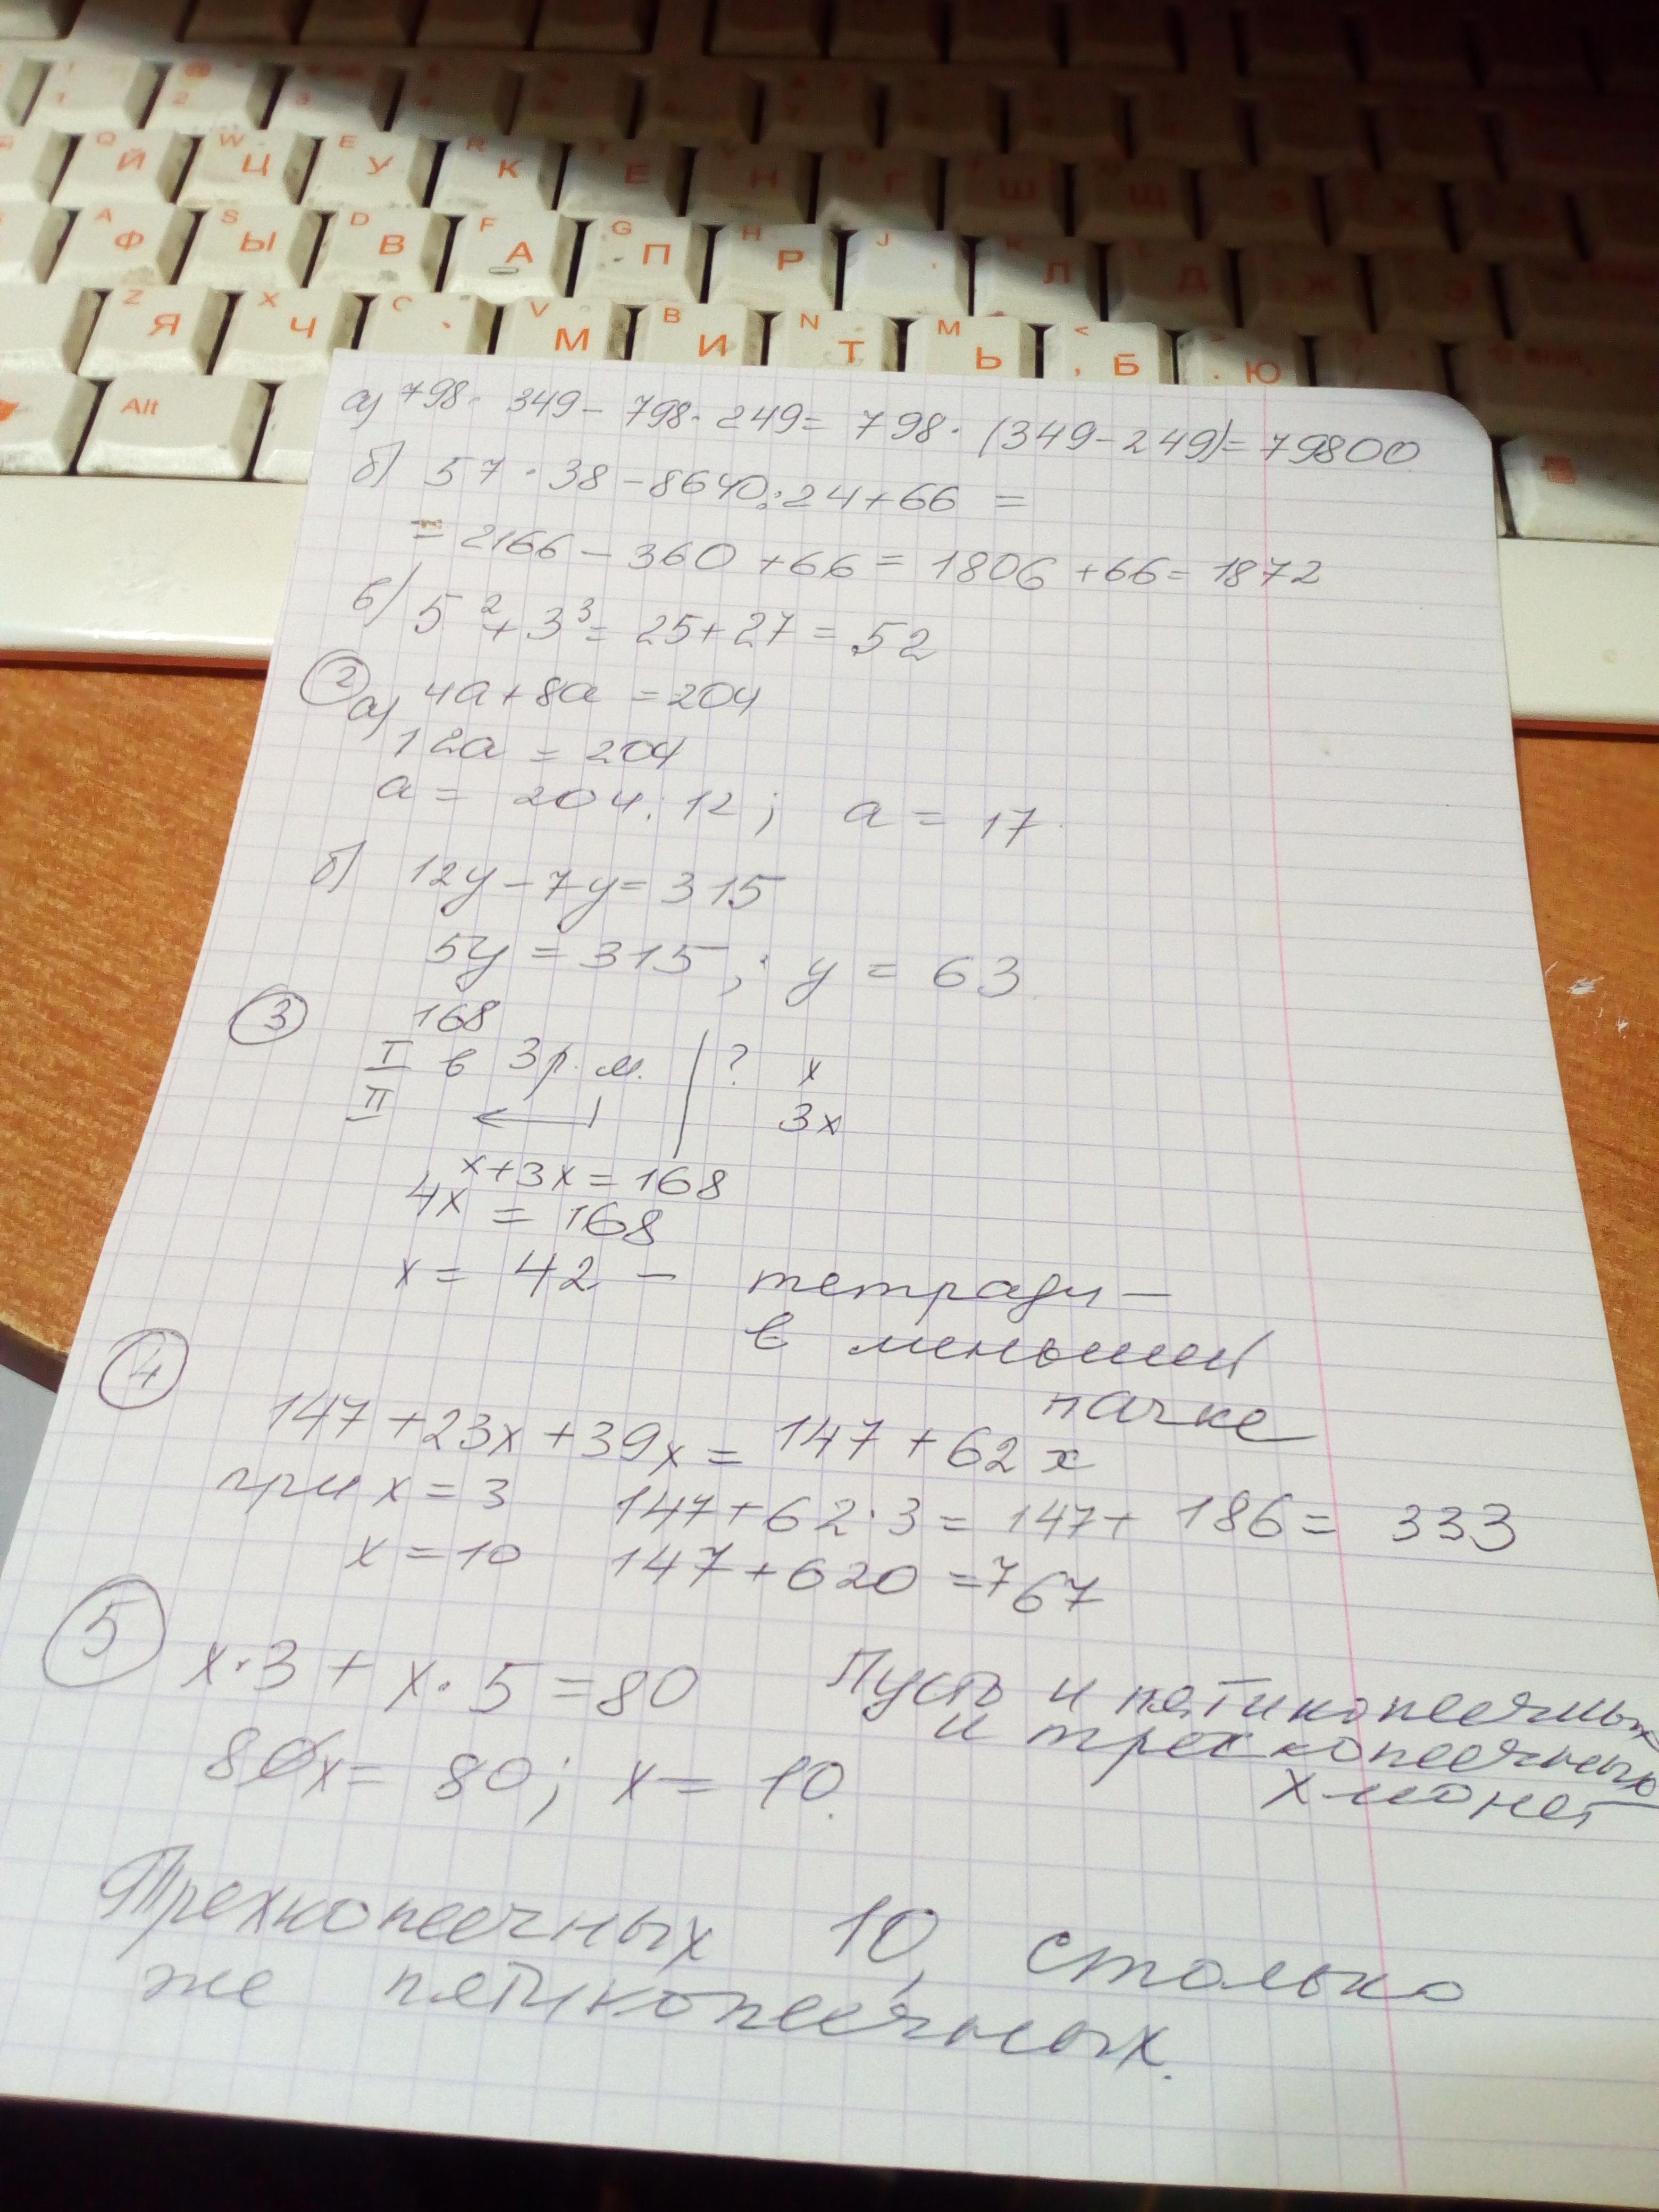 Q W E R
Й Ц У К Е Н Г Ш Щ З Х
A S D F G H J K
Ф Ы В А П Р Л Д Ж Э
Z X C V B N M <
Я Ч М И Т Ь , Б . Ю
Alt
а) 798 · 349 - 798 · 249 = 798 · (349 - 249) = 79800
б) 57 · 38 - 8640 : 24 + 66 =
= 2166 - 360 + 66 = 1806 + 66 = 1872
в) 5² + 3³ = 25 + 27 = 52
2 а) 4а + 8а = 204
12а = 204
а = 204 : 12 ; а = 17
б) 12у - 7у = 315
5у = 315 ; у = 63
3 168
I в 3 р. м. | ? х
II ← | 3х
х + 3х = 168
4х = 168
х = 42 - тетради -
в меньшей
пачке
4
147 + 23х + 39х = 147 + 62х
при х = 3 147 + 62 · 3 = 147 + 186 = 333
х = 10 147 + 620 = 767
5 х · 3 + х · 5 = 80 Пусть и пятикопеечных
и трехкопеечных
х монет
80х = 80 ; х = 10.
Трехкопеечных 10, столько
же пятикопеечных.